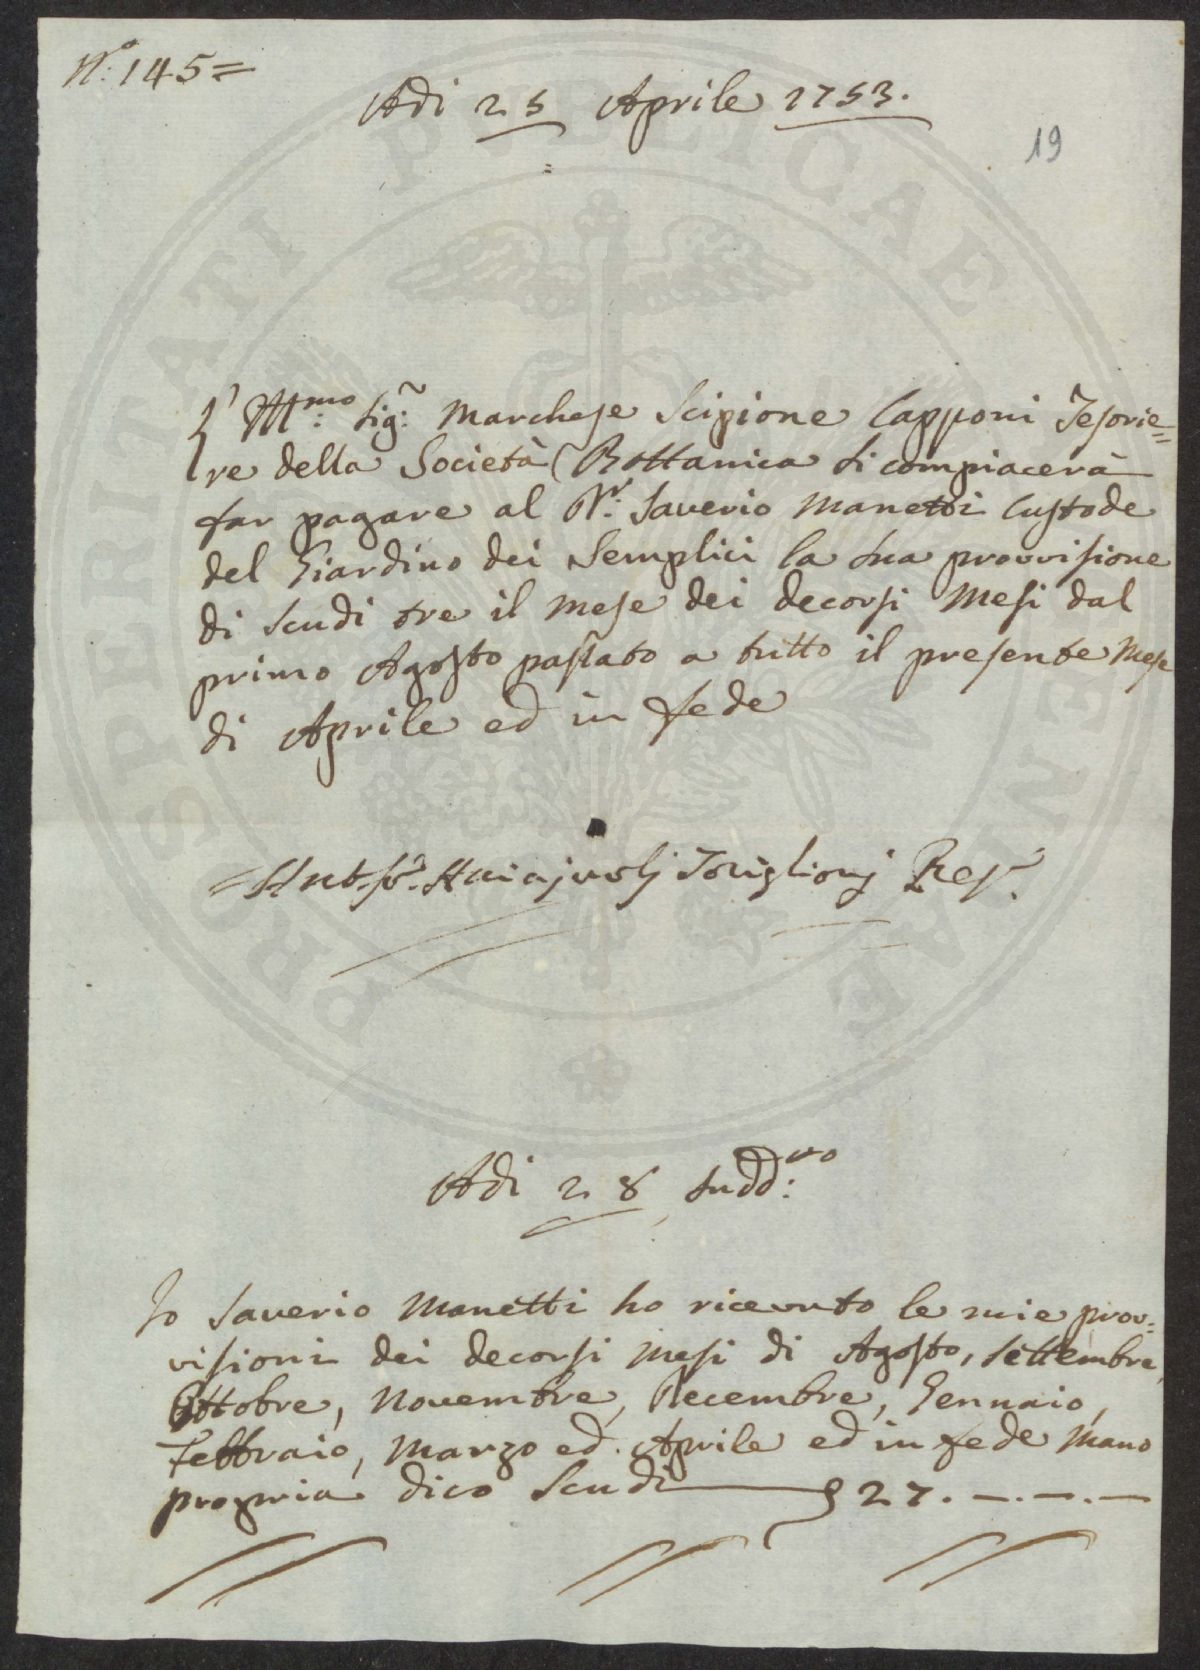 N.º 145=
Adi 25 Aprile 1753.
19
L' Ill.mo Sig.r Marchese Scipione Capponi Tesorie=
re della Società Bottanica si compiacerà
far pagare al D.r Saverio Manetti Custode
del Giardino dei Semplici la sua provvisione
di scudi tre il mese dei decorsi Mesi dal
primo Agosto passato a tutto il presente Mese
di Aprile ed in fede
Adi 28 sudd.to
Io Saverio Manetti ho ricevuto le mie prov=
visioni dei decorsi Mesi di Agosto, Settembre,
Ottobre, Novembre, Decembre, Gennaio,
Febbraio, Marzo ed Aprile ed in fede Mano
propria dico Scudi 27.—.—.—
PROSPERITATI PUBLICAE